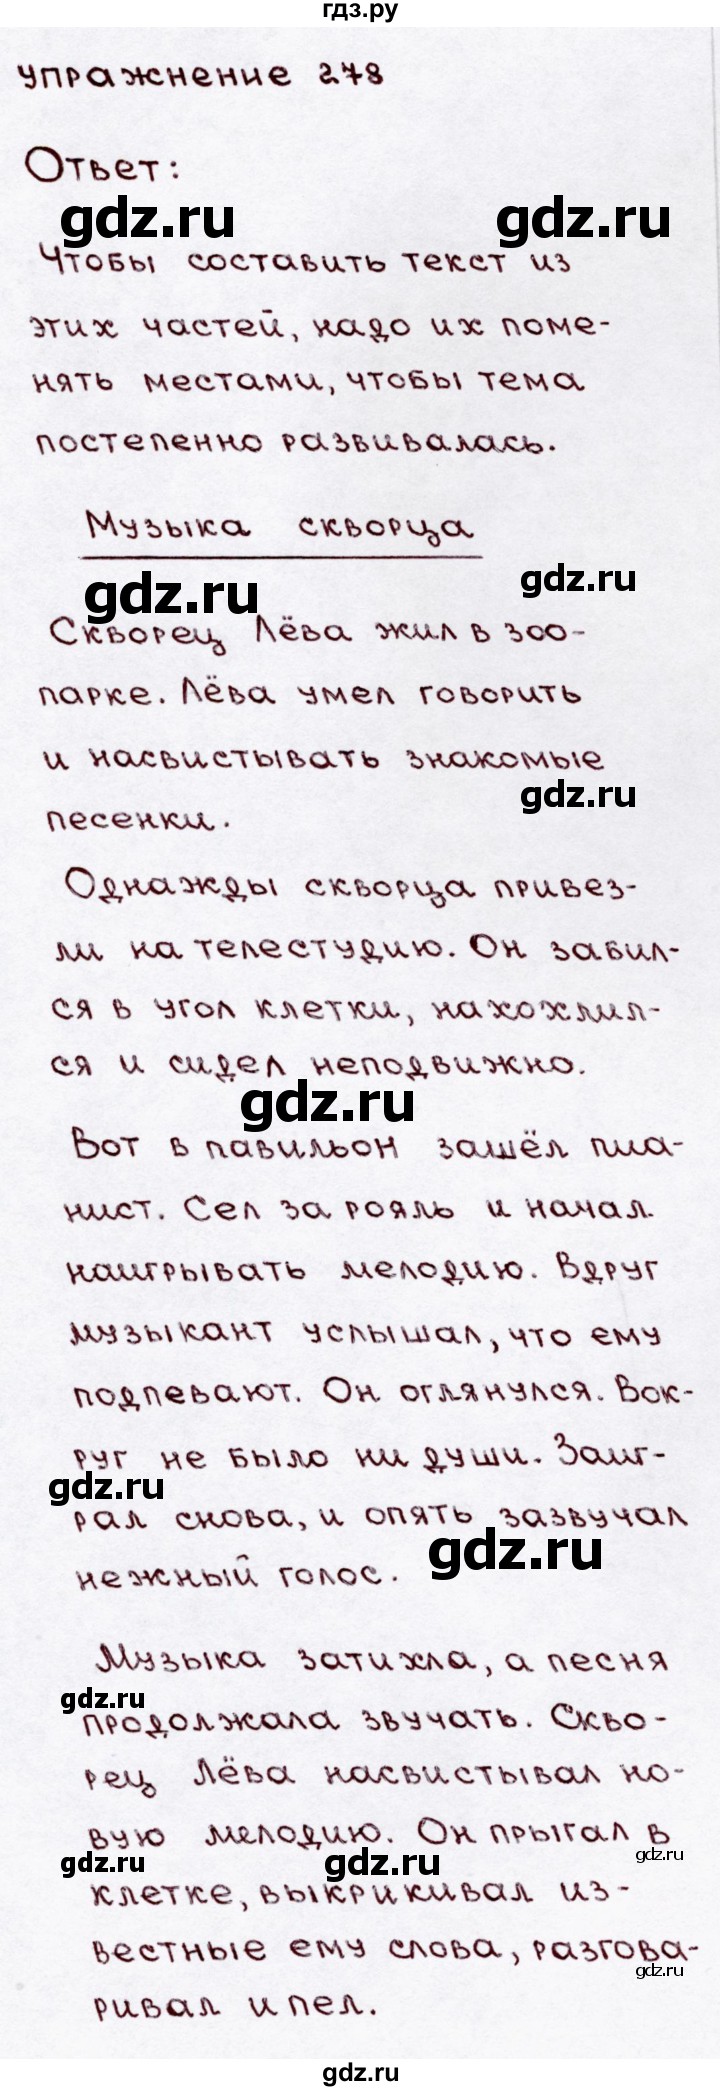 гдз.ру
упражнение 278
Ответ:
gdz.ru gdz.ru
Чтобы составить текст из
этих частей, надо их поме-
нять местами, чтобы тема
постепенно развивалась.
Музыка скворца
gdz.ru gdz.ru
Скворец Лёва жил в зоо-
парке. Лёва умел говорить
и насвистывать знакомые
gdz.ru
песенки.
Однажды скворца привез-
ли на телестудию. Он забил-
ся в угол клетки, нахохлил-
ся и сидел неподвижно.
gdz.ru
Вот в павильон зашёл пиа-
нист. Сел за рояль и начал
наигрывать мелодию. Вдруг
музыкант услышал, что ему
подпевают. Он оглянулся. Вок-
руг не было ни души. Заиг-
gdz.ru
рал снова, и опять зазвучал
gdz.ru
нежный голос.
Музыка затихла, а песня
gdz.ru
продолжала звучать. Скво-
рец Лёва насвистывал но-
вую мелодию. Он прыгал в
gdz.ru gdz.ru gdz.ru
клетке, выкрикивал из-
вестные ему слова, разгова-
gdz.ru
ривал и пел.
gdz.ru